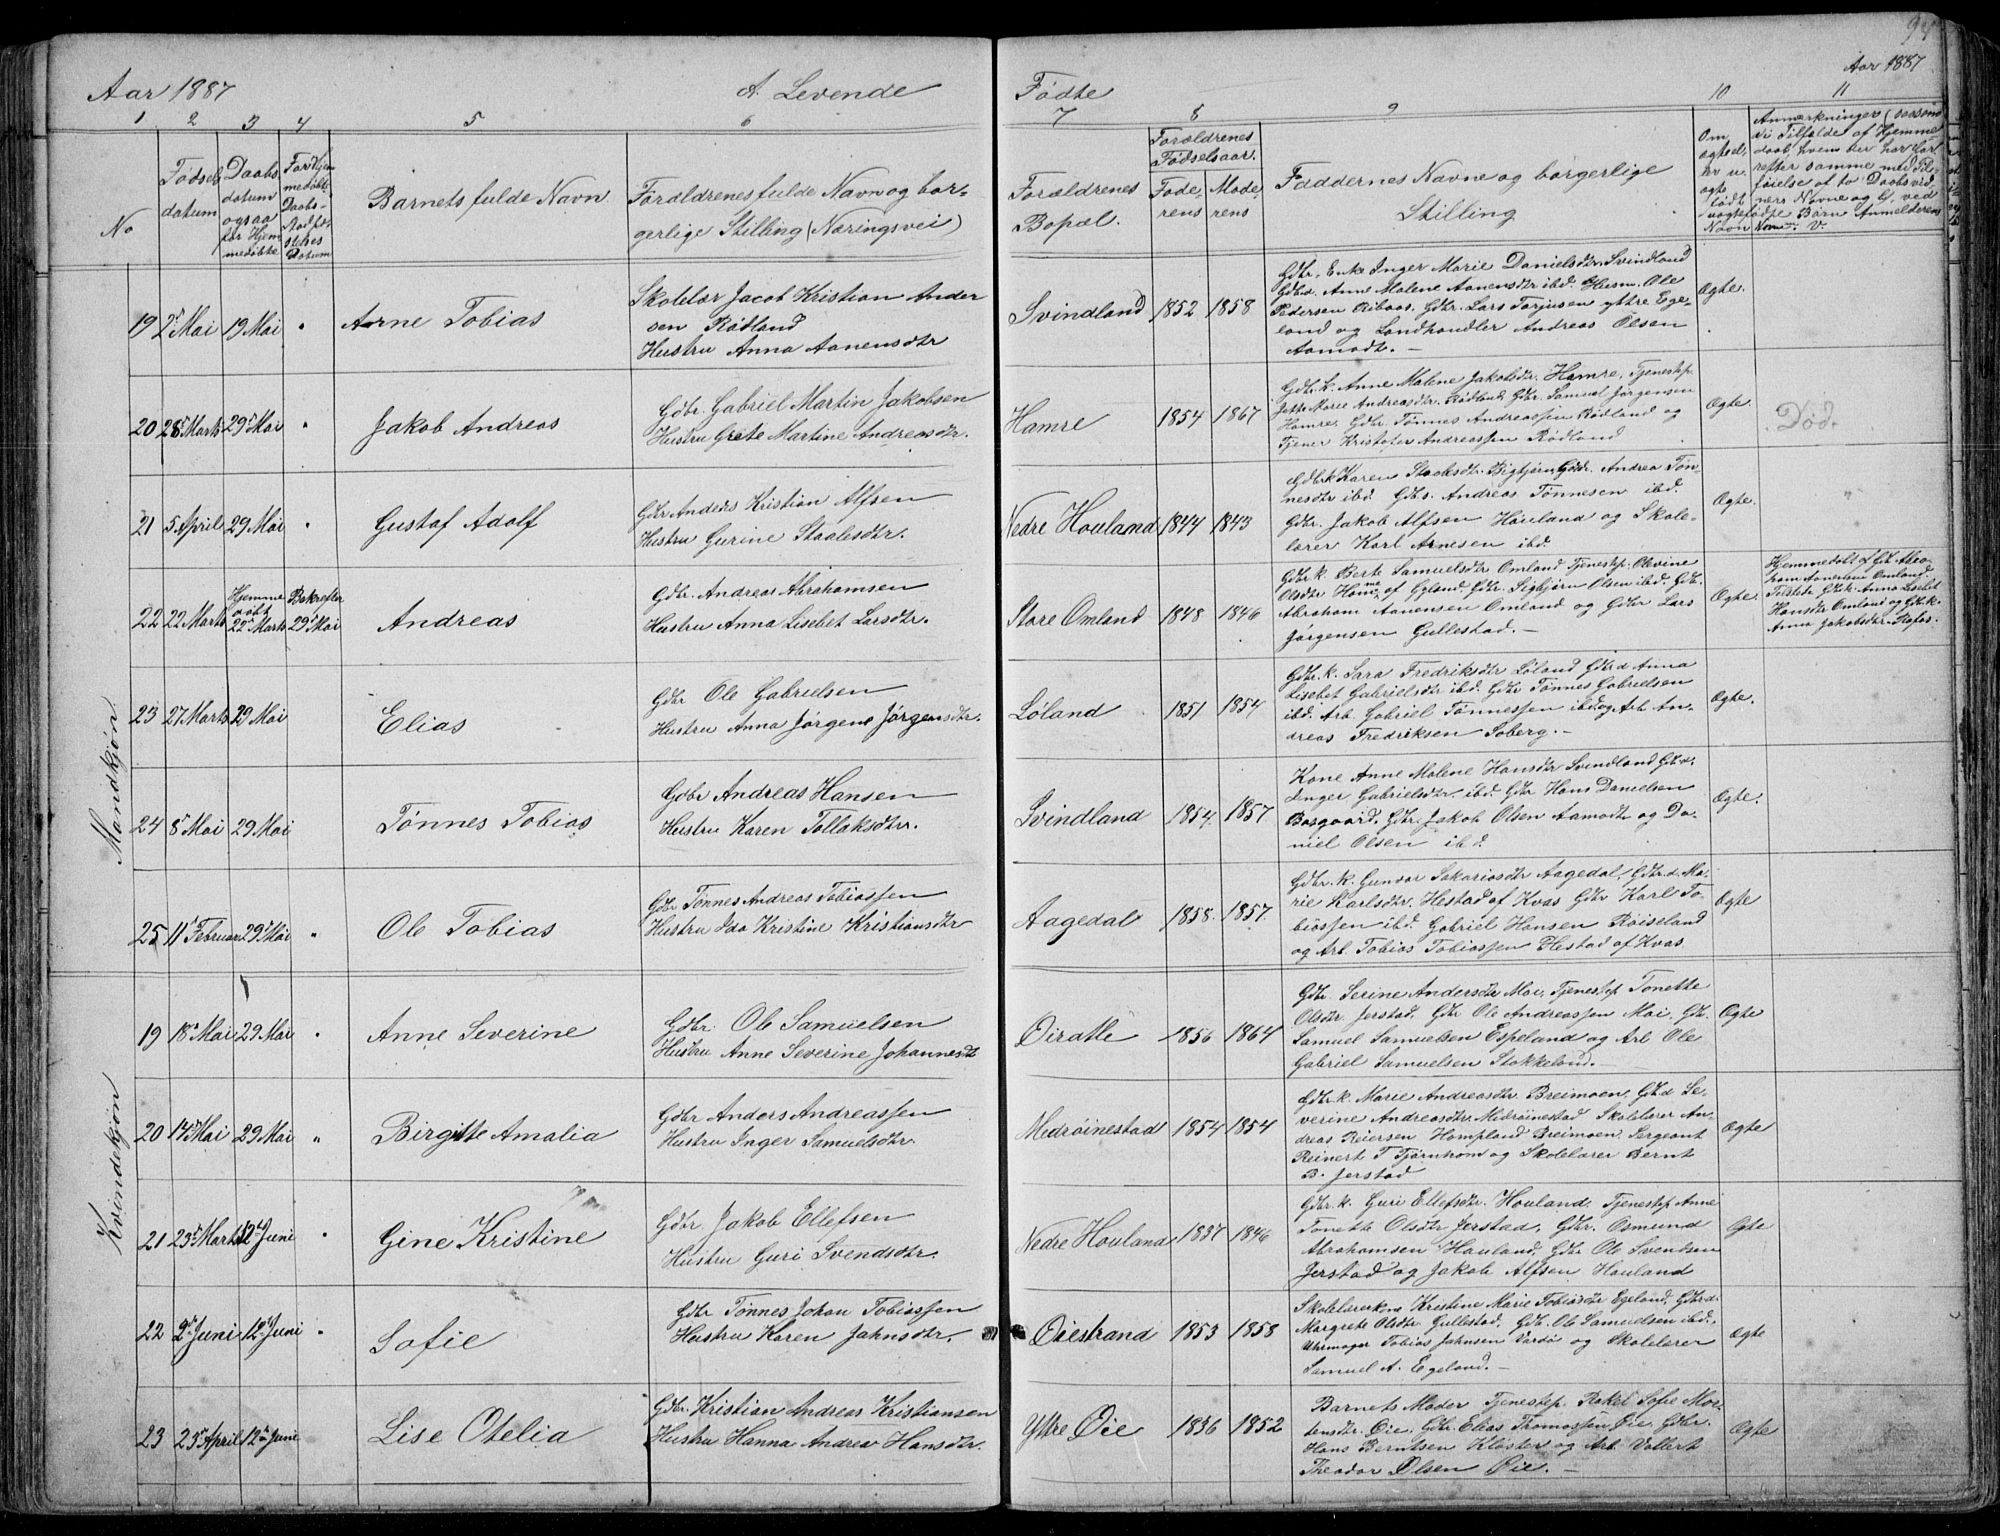 Aar 1887
A. Levende
Fødte
Aar 1887
1 2 3 4 5 6 7 8 9 10 11
No
Fødsels datum
Daabs datum ogsaa for Hjemmedøbte
Barnets fulde Navn
Forældrenes fulde Navn og borgerlige Stilling (Næringsvei)
Forældrenes Bopæl.
Forældrenes Fødselsaar.
Faderens
Moderens
Faddernes Navne og borgerlige Stilling
Mandkjøn
19 2 Mai 19 Mai " Arne Tobias
Skolelær Jacob Kristian Andersen Rødland
Hustru Anna Aanensdtr
Svindland 1852 1858
Gdbr. Enke Inger Marie Danielsdtr. Svindland
Gdbrd. Anne Malene Aanensdtr ibd. Husm. Ole
Pedersen Riboas. Gdbr. Lars Torjusen yttre Ege-
land og Landhandler Andreas Olsen
Aamodt. –
Ægte.
20 28 Marts 29 Mai " Jakob Andreas
Gdbr. Gabriel Martin Jakobsen
Hustru Grete Martine Andreasdtr.
Hamre 1854 1867
Gdbr. k. Anne Malene Jakobsdtr. Hamre, Tjenestep.
Marie Andreasdtr. Rødland, Gdbr. Samuel Jørgensen
Hamre, Gdbr. Tønnes Andreassen Rødland og
Tjener Kristofer Andreassen Rødland
Ægte. Død.
21 5 April 29 Mai " Gustaf Adolf
Gdbr Anders Kristian Alfsen
Hustru Gurine Staalesdtr.
Nedre Houland 1844 1843
Gdbrk Karen Staalesdtr. Bigtjørn, Gdbr. Andrea Tøn-
nesdtr ibd. Gdbrs. Andreas Tønnesen ibd.
Gdbr. Jakob Alfsen Houland og Skole-
lærer Karl Arnesen ibd.
Ægte.
22 22 Marts Hjemmedøbt 22 Marts Bekræftet 29 Mai Andreas
Gdbr. Andreas Abrahamsen
Hustru Anna Lisebet Larsdtr.
Store Omland 1848 1846
Gdbr k. Berte Samuelsdtr Omland Tjenestep. Olevine
Olsdtr Homme af Gyland. Gdbr. Sigbjørn Olsen ibd. Gdb.
Abraham Aanensen Omland og Gdbr Lars
Jørgensen Gullestad. –
Ægte
Hjemmedøbt af Gb. Abra-
ham Aanensen Omland.
Tilstede Gb.k. Anna Lisebet
Hansdtr Omland og Gb.k.
Anna Jakobsdtr. Stofos.
23 27 Marts 29 Mai Elias
Gdbr Ole Gabrielsen
Hustru Anna Jørgene Jørgensdtr.
Løland 1851 1854
Gdbr. k. Sara Fredriksdtr Løland Gdbrd Anna
Lisebet Gabrielsdtr ibd. Gdbr Tønnes Gabrielsen
ibd. Arb. Gabriel Tønnessen ibd og Arb An-
dreas Fredriksen Soberg. –
Ægte.
24 8 Mai 29 Mai Tønnes Tobias
Gdbr Andreas Hansen
Hustru Karen Tollaksdtr.
Svindland 1854 1857
Kone Anne Malene Hansdtr Svindland Gbd.
Inger Gabrielsdtr. ibd. Gdbr Hans Danielsen
Bosgaard, Gdbr. Jakob Olsen Aamodt og Da-
niel Olsen ibd.
Ægte.
25 11 Februar 29 Mai " Ole Tobias
Gdbr Tønnes Andreas Tobiassen
Hustru Ida Kristine Kristiansdtr
Aagedal 1858 1857
Gdbr. k. Gundar Sakariasdtr Aagedal, Gdbr.d. Ma-
rie Karlsdtr. Hestad af Kvas Gdbr Karl To-
biassen ibd. Gabriel Hansen Røiseland
og Arb. Tobias Tobiassen Hestad af Kvas.
Ægte
Kvindekjøn
19 18 Mai 29 Mai " Anne Severine
Gdbr. Ole Samuelsen
Hustru Anne Severine Johannesdt
1856 1864
Gdbr. Serine Andersdtr Moi, Tjenestep Tonette
Olsdtr Jerstad, Gdbr Ole Andreassen Moi, Gb.
Samuel Samuelsen Espeland og Arb Ole
Gabriel Samuelsen Stokkeland. –
Ægte
20 14 Mai 29 Mai " Birgitte Amalia
Gdbr Anders Andreassen
Hustru Inger Samuelsdtr.
Medrøinestad 1854 1854
Gdbr. k. Marie Andreasdtr. Breimoen, Gbd Se-
verine Andreasdtr Medrøinestad Skolelærer An-
dreas Reiersen Hompland Breimoen, Sergeant
Reinert T Tjørnhom og Skolelærer Bernt
B. Jerstad
Ægte
21 23 Marts 12 Juni Gine Kristine
Gdbr. Jakob Ellefsen
Hustru Guri Svendsdtr.
Nedre Houland 1837 1846
Gdbr. k. Guri Ellefsdtr. Houland, Tjenestep Anne
Tonette Olsdtr Jerstad, Gdbr. Osmund
Abrahamsen Houland, Gdbr Ole Svendsen
Jerstad og Jakob Alfsen Houland
Ægte
22 2 Juni 12 Juni " Sofie
Gdbr Tønnes Johan Tobiassen
Hustru Karen Jahnsdtr.
Øiestrand 1853 1858
Skolelærerkone Kristine Marie Tobiasdtr Egeland, Gbd.
Margrete Olsdtr Gullestad, Gdb. Ole Samuelsen ibd.,
Uhrmager Tobias Jahnsen Vardø og Skolelærer
Samuel A. Egeland. –
Ægte
23 23 April 12 Juni Lise Otelia
Gdbr. Kristian Andreas Kristiansen
Hustru Hanna Andrea Hansdtr.
Yttre Øie 1836 1852
Barnets Moder Tjenestep. Rakel Sofie Mor-
tensdtr. Øie, Gdbr. Elias Thomassen Øie, Gdbr.
Hans Berntsen Kloster og Arb Vollert
Theodor Olsen Øie. –
Ægte